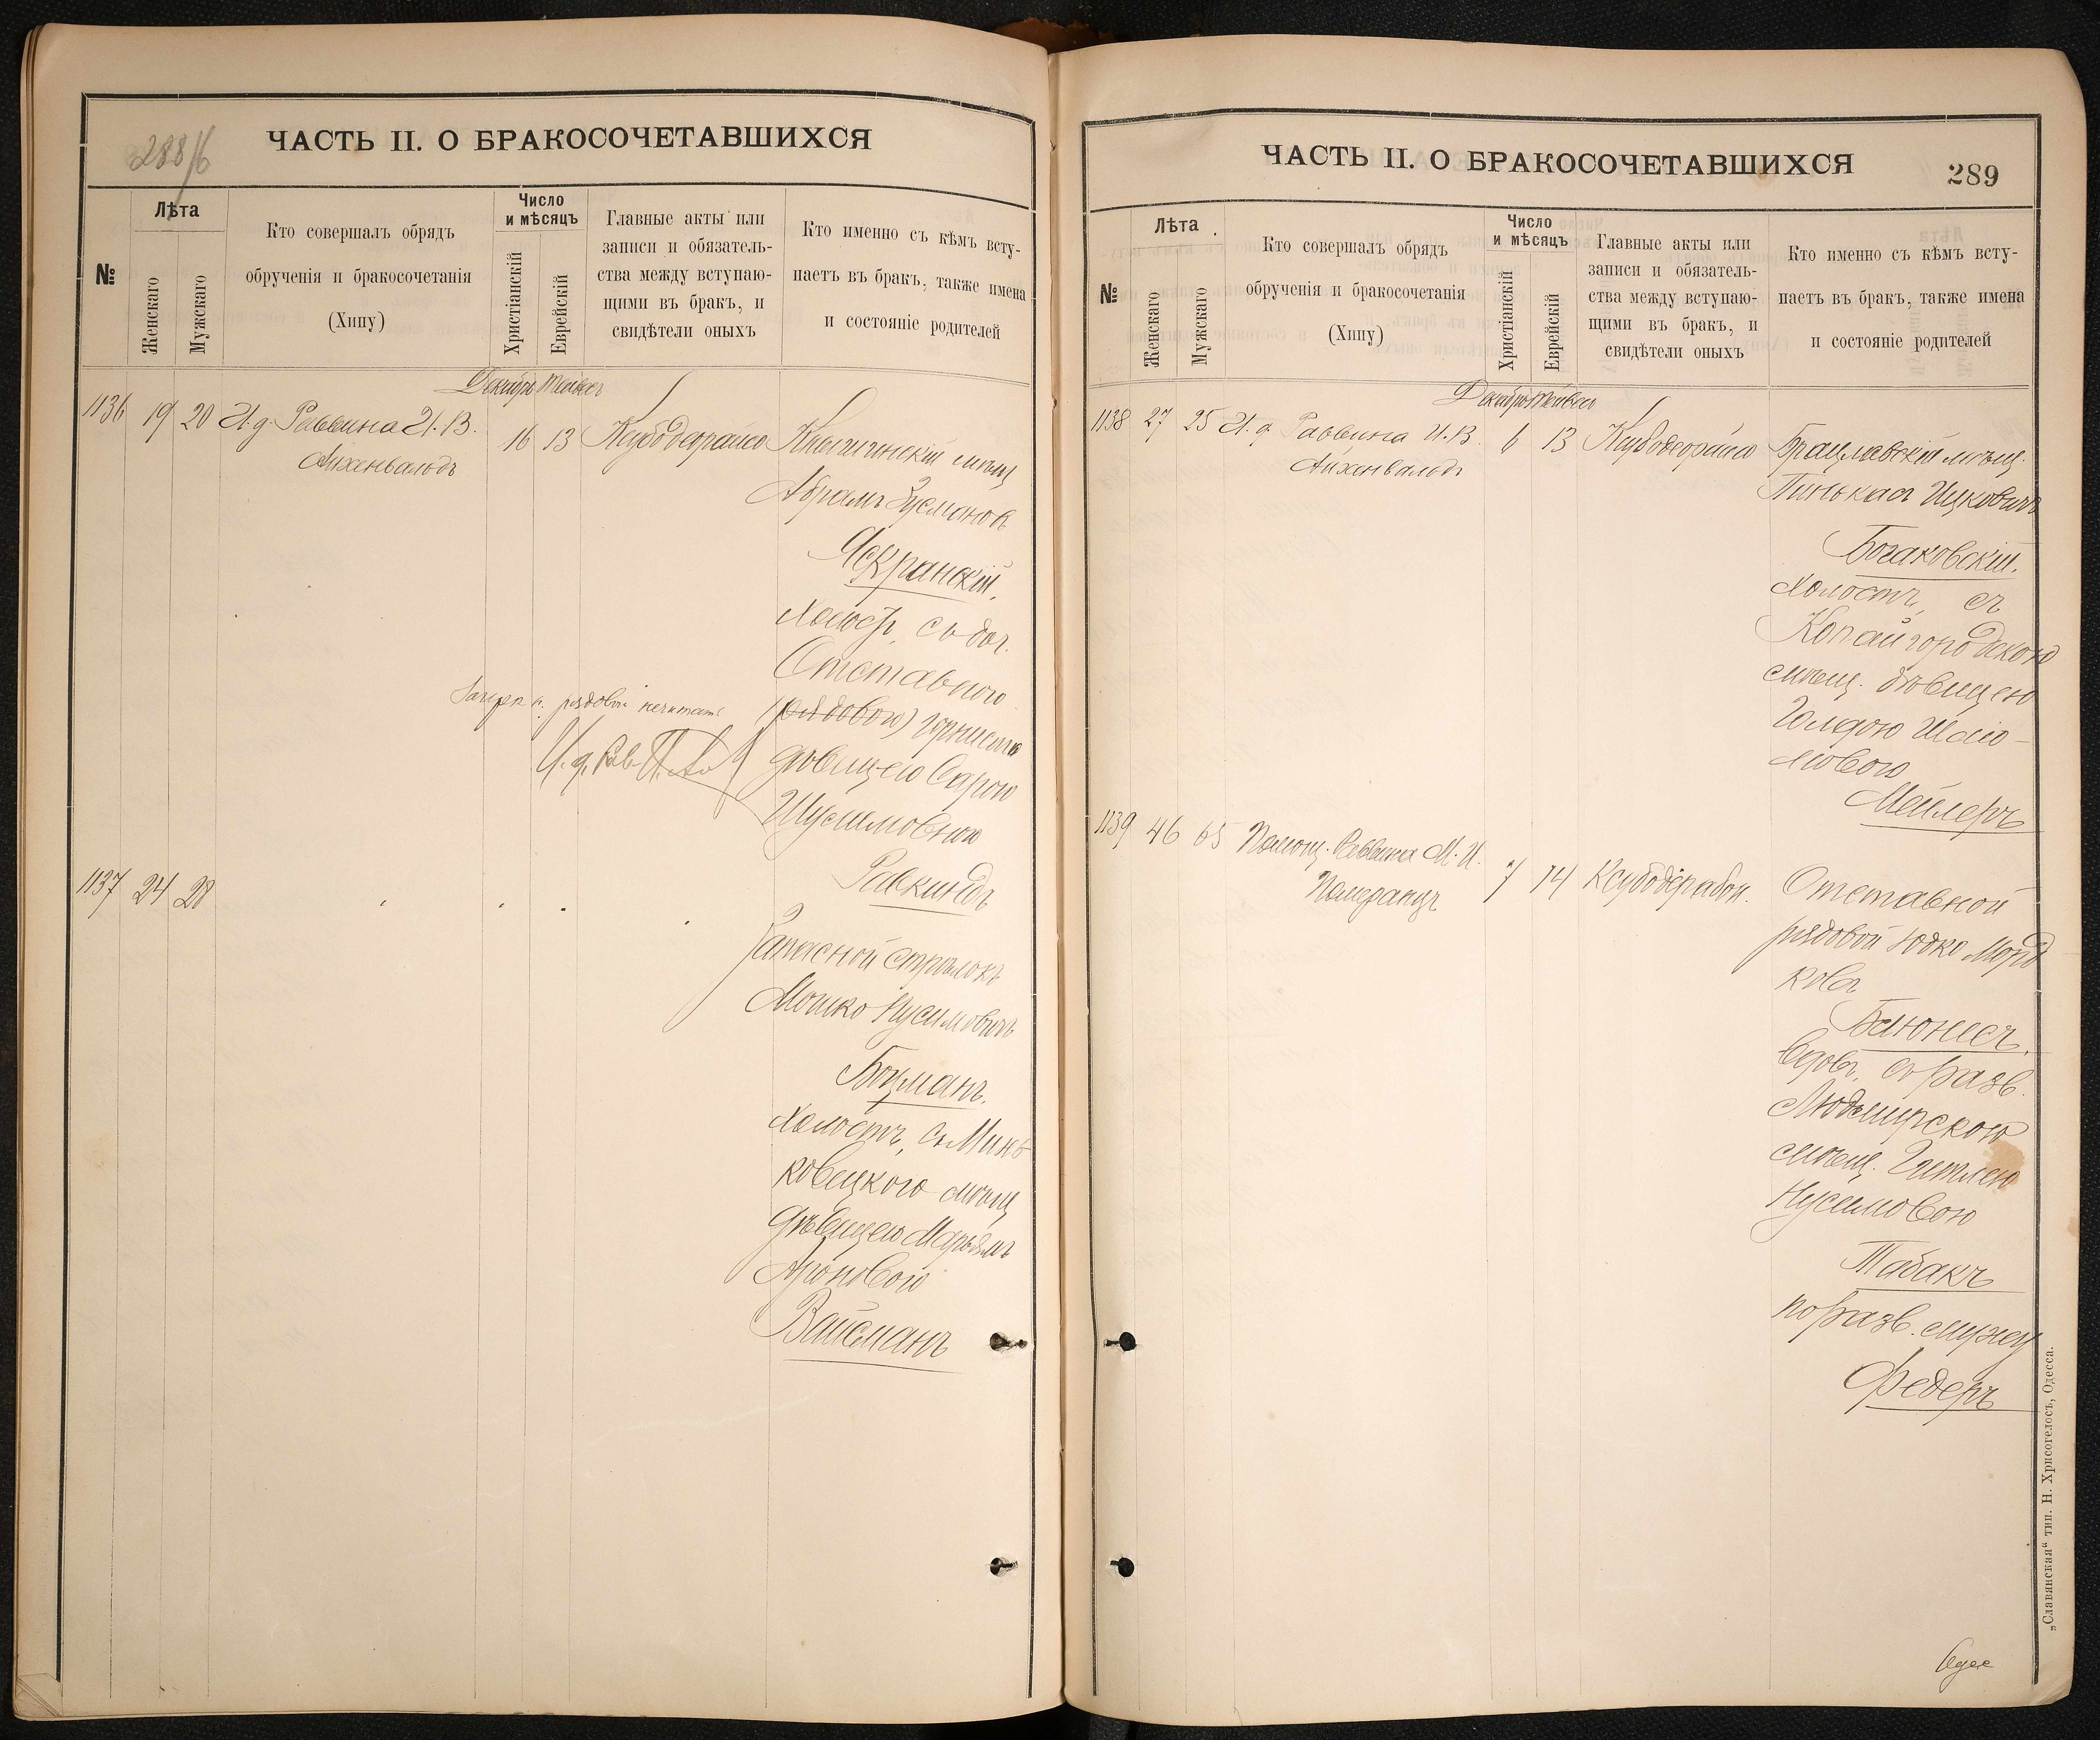 288/б
ЧАСТЬ II. О БРАКОСОЧЕТАВШИХСЯ
№
Лѣта
Женскаго
Мужскаго
Кто совершалъ обрядъ
обрученія и бракосочетанія
(Хипу)
Число
и мѣсяцъ
Христіанскій
Еврейскій
Главные акты или
записи и обязатель-
ства между вступаю-
щими въ бракъ, и
свидѣтели оныхъ
Кто именно съ кѣмъ всту-
паетъ въ бракъ, также имена
и состояніе родителей
Декабрь Тейвесъ
1136 19 20 И. д. Раввина И. В.
Айхенвальдъ
16 13
мѣщ
Абрамъ Зусмановъ
Холостъ, съ доч.
Отставного
(рядового) горниста
дѣвицею Сарою
Шулимовною
Равкиндъ
рядовой нечитать
И. д. Рав.
1137 24 28
Запасной стрѣлокъ
Мошко Нусимовичъ
Боцманъ.
Холостъ, съ Минь
ковецкого мѣщ
дѣвицею Марьямъ
Ароновою
Вайсманъ
ЧАСТЬ II. О БРАКОСОЧЕТАВШИХСЯ
289
№
Лѣта
Женскаго
Мужскаго
Кто совершалъ обрядъ
обрученія и бракосочетанія
(Хипу)
Число
и мѣсяцъ
Христіанскій
Еврейскій
Главные акты или
записи и обязатель-
ства между вступаю-
щими въ бракъ, и
свидѣтели оныхъ
Кто именно съ кѣмъ всту-
паетъ въ бракъ, также имена
и состояніе родителей
Декабрь Тейвесъ
1138 27 25 И. д. Раввина И. В.
Айхенвальдъ
6 13
Брацлавскій мѣщ.
Пинькасъ Ицковичъ
Богаковскій.
Холостъ, съ
Копайгородскою
мѣщ. дѣвицею
Голдою Шліо-
мовою
Мейлеръ
1139 46 65 Помощ. Раввина М. И.
Померанцъ
7 14
Отставной
рядовой Юдко Морд
ковъ
Вдовъ, съ разв.
мѣщ. Гитлею
Нусимовою
Табакъ
по разв. мужу
Федеръ
„Славянская“ тип. Н. Хрисогелосъ, Одесса.